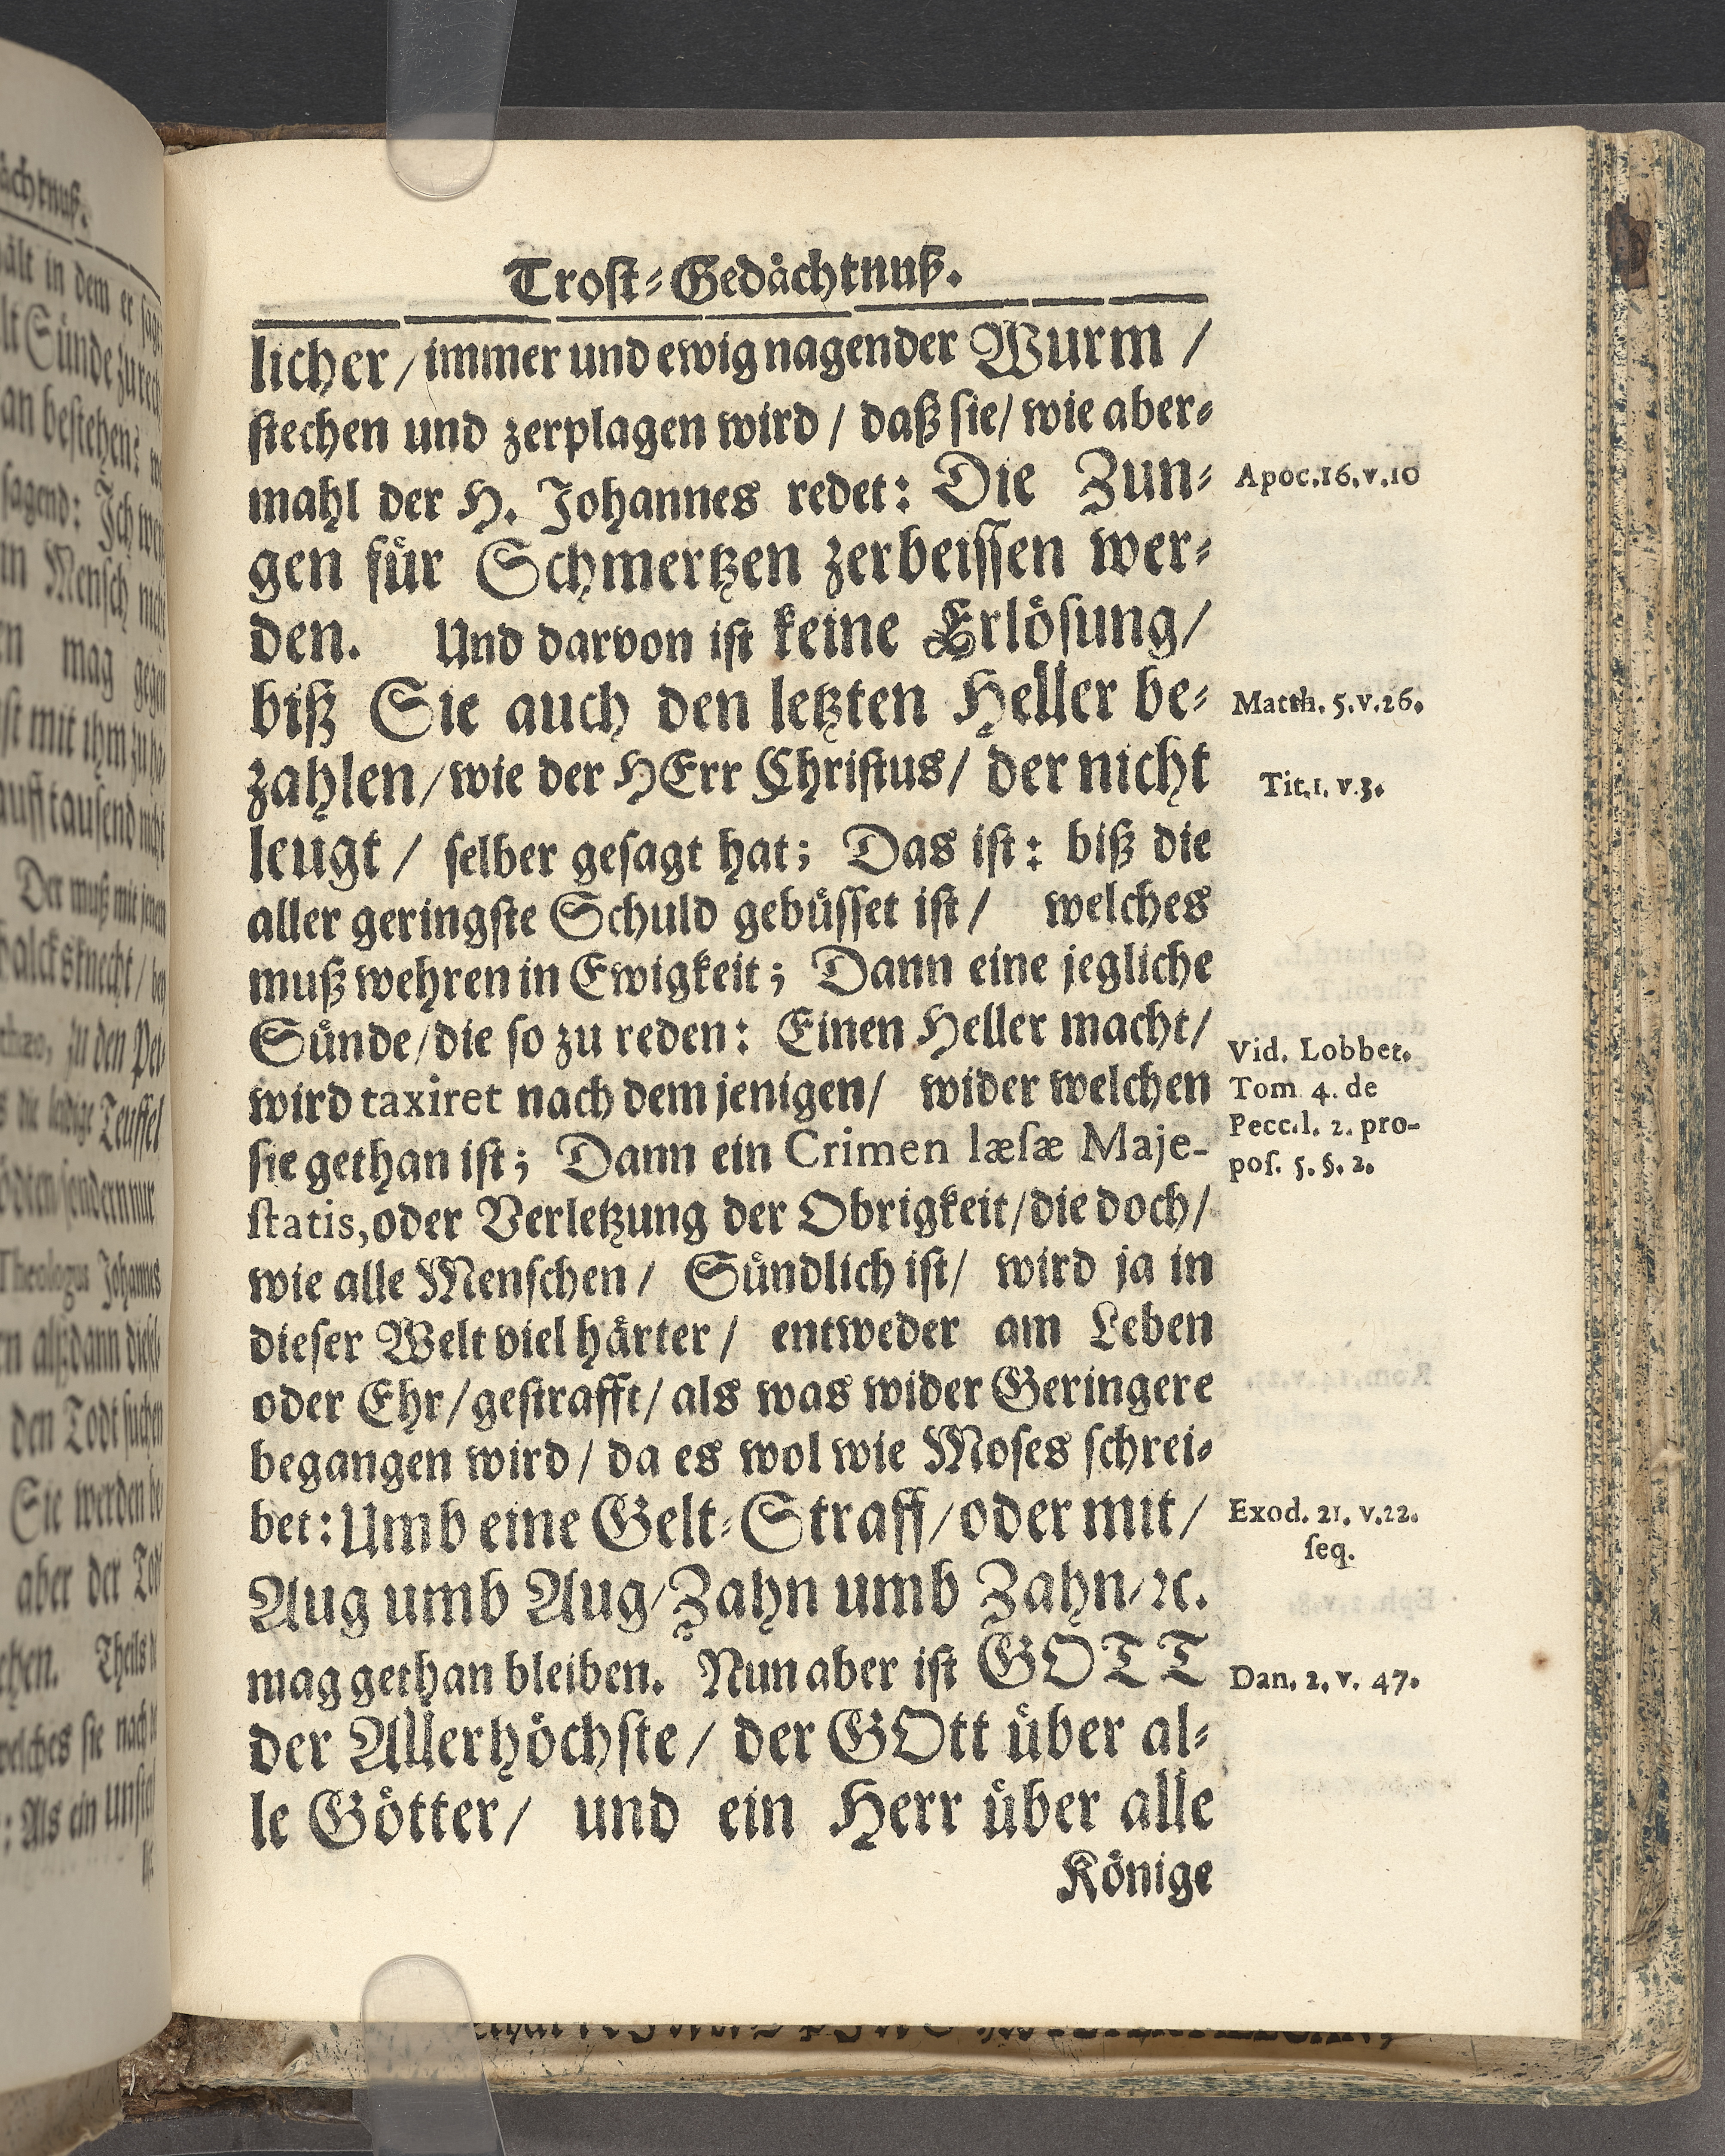 Trost-Gedächtnuß.
licher / immer und ewig nagender Wurm /
stechen und zerplagen wird / daß sie / wie aber-
mahl der H. Johannes redet: Die Zun-
Apoc.16.v.10
gen für Schmertzen zerbeissen wer-
den. Und darvon ist keine Erlösung /
biß Sie auch den letzten Heller be-
Matth. 5.v.26.
zahlen / wie der HErr Christus / der nicht
Tit.1. v.3.
leugt / selber gesagt hat; Das ist: biß die
aller geringste Schuld gebüsset ist / welches
muß wehren in Ewigkeit; Dann eine jegliche
Sünde / die so zu reden: Einen Heller macht /
Vid. Lobbet.
wird taxiret nach dem jenigen / wider welchen
Tom 4. de
sie gethan ist; Dann ein Crimen læsæ Maje-
Pecc.l. 2. pro-
pos. 5. §. 2.
statis, oder Verletzung der Obrigkeit / die doch /
wie alle Menschen / Sündlich ist / wird ja in
dieser Welt viel härter / entweder am Leben
oder Ehr / gestrafft / als was wider Geringere
begangen wird / da es wol wie Moses schrei-
bet: Umb eine Gelt-Straff / oder mit /
Exod. 21. v.22.
seq.
Aug umb Aug / Zahn umb Zahn / ꝛc.
mag gethan bleiben. Nun aber ist GOTT
Dan. 2. v. 47.
der Allerhöchste / der GOtt über al-
le Götter / und ein Herr über alle
Könige